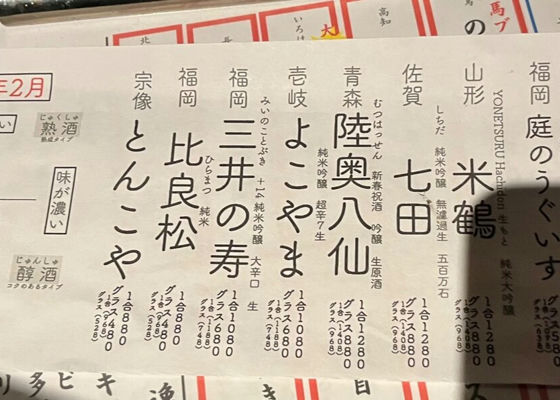 福岡
庭のうぐいす
山形
米鶴
YONETSURU Hachidon 生もと 純米大吟醸
1合1280
グラス880
グラス(968)
佐賀
しちだ
七田
純米吟醸 無濾過生 五百万石
1合1280
1合(1408)
グラス880
グラス(968)
青森
むつはっせん
陸奥八仙
新春祝酒 吟醸 生原酒
1合1280
グラス880
グラス(968)
壱岐
よこやま
純米吟醸 超辛7生
1合1080
1合(1188)
グラス680
グラス(748)
福岡
みいのことぶき
三井の寿
+14 純米吟醸 大辛口 生
1合1080
1合(1188)
グラス680
グラス(748)
福岡
ひらまつ
比良松
純米
1合880
1合(968)
グラス480
グラス(528)
宗像
とんこや
1合880
1合(968)
グラス480
グラス(528)
年2月
じゅくしゅ
熟酒
熟成タイプ
味が濃い
じゅんしゅ
醇酒
コクのあるタイプ
高知
いろは
大
馬ブ
の